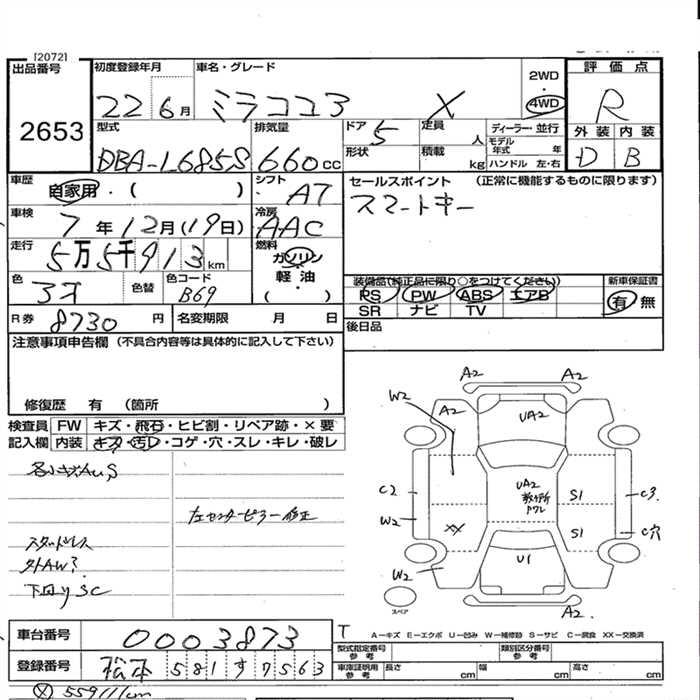 [2072]
出品番号 初度登録年月 車名・グレード 2WD 評価点
2653 22 6月 ミラココア X 4WD R
型式 排気量 ドア 5 定員 人 ディーラー・並行 外装 内装
DBA-L685S 660cc 形状 積載 kg モデル年式 年 ハンドル 左・右 D B
車歴 自家用・( ) シフト AT セールスポイント (正常に機能するものに限ります)
車検 7年12月(19日) 冷房 AAC スマートキー
走行 5万5千913km 燃料 ガソリン 軽油 ( )
色 色替 色コード B69 装備品(純正品に限り○をつけてください) 新車保証書
PS PW ABS エアB 有 無
SR ナビ TV
R券 8730円 名変期限 月 日 後日品
注意事項申告欄 (不具合内容等は具体的に記入して下さい)
修復歴 有 (箇所 )
検査員 FW キズ・飛石・ヒビ割・リペア跡・×要
記入欄 内装 キズ・汚レ・コゲ・穴・スレ・キレ・破レ
各小キズAUS
左センターピラー修正
スタッドレス
外AW?
下回りSC
A2 A2
W2 A2 UA2
C2 UA2 S1 C3
W2 XX S1 C穴
W2 U1
スペア A2
車台番号 0003873
T A-キズ E-エクボ U-凹み W-補修跡 S-サビ C-腐食 XX-交換済
登録番号 松本 581す7563
型式指定番号 参考 類別区分番号 参考
車庫証明用 参考 長さ cm 幅 cm 高さ cm